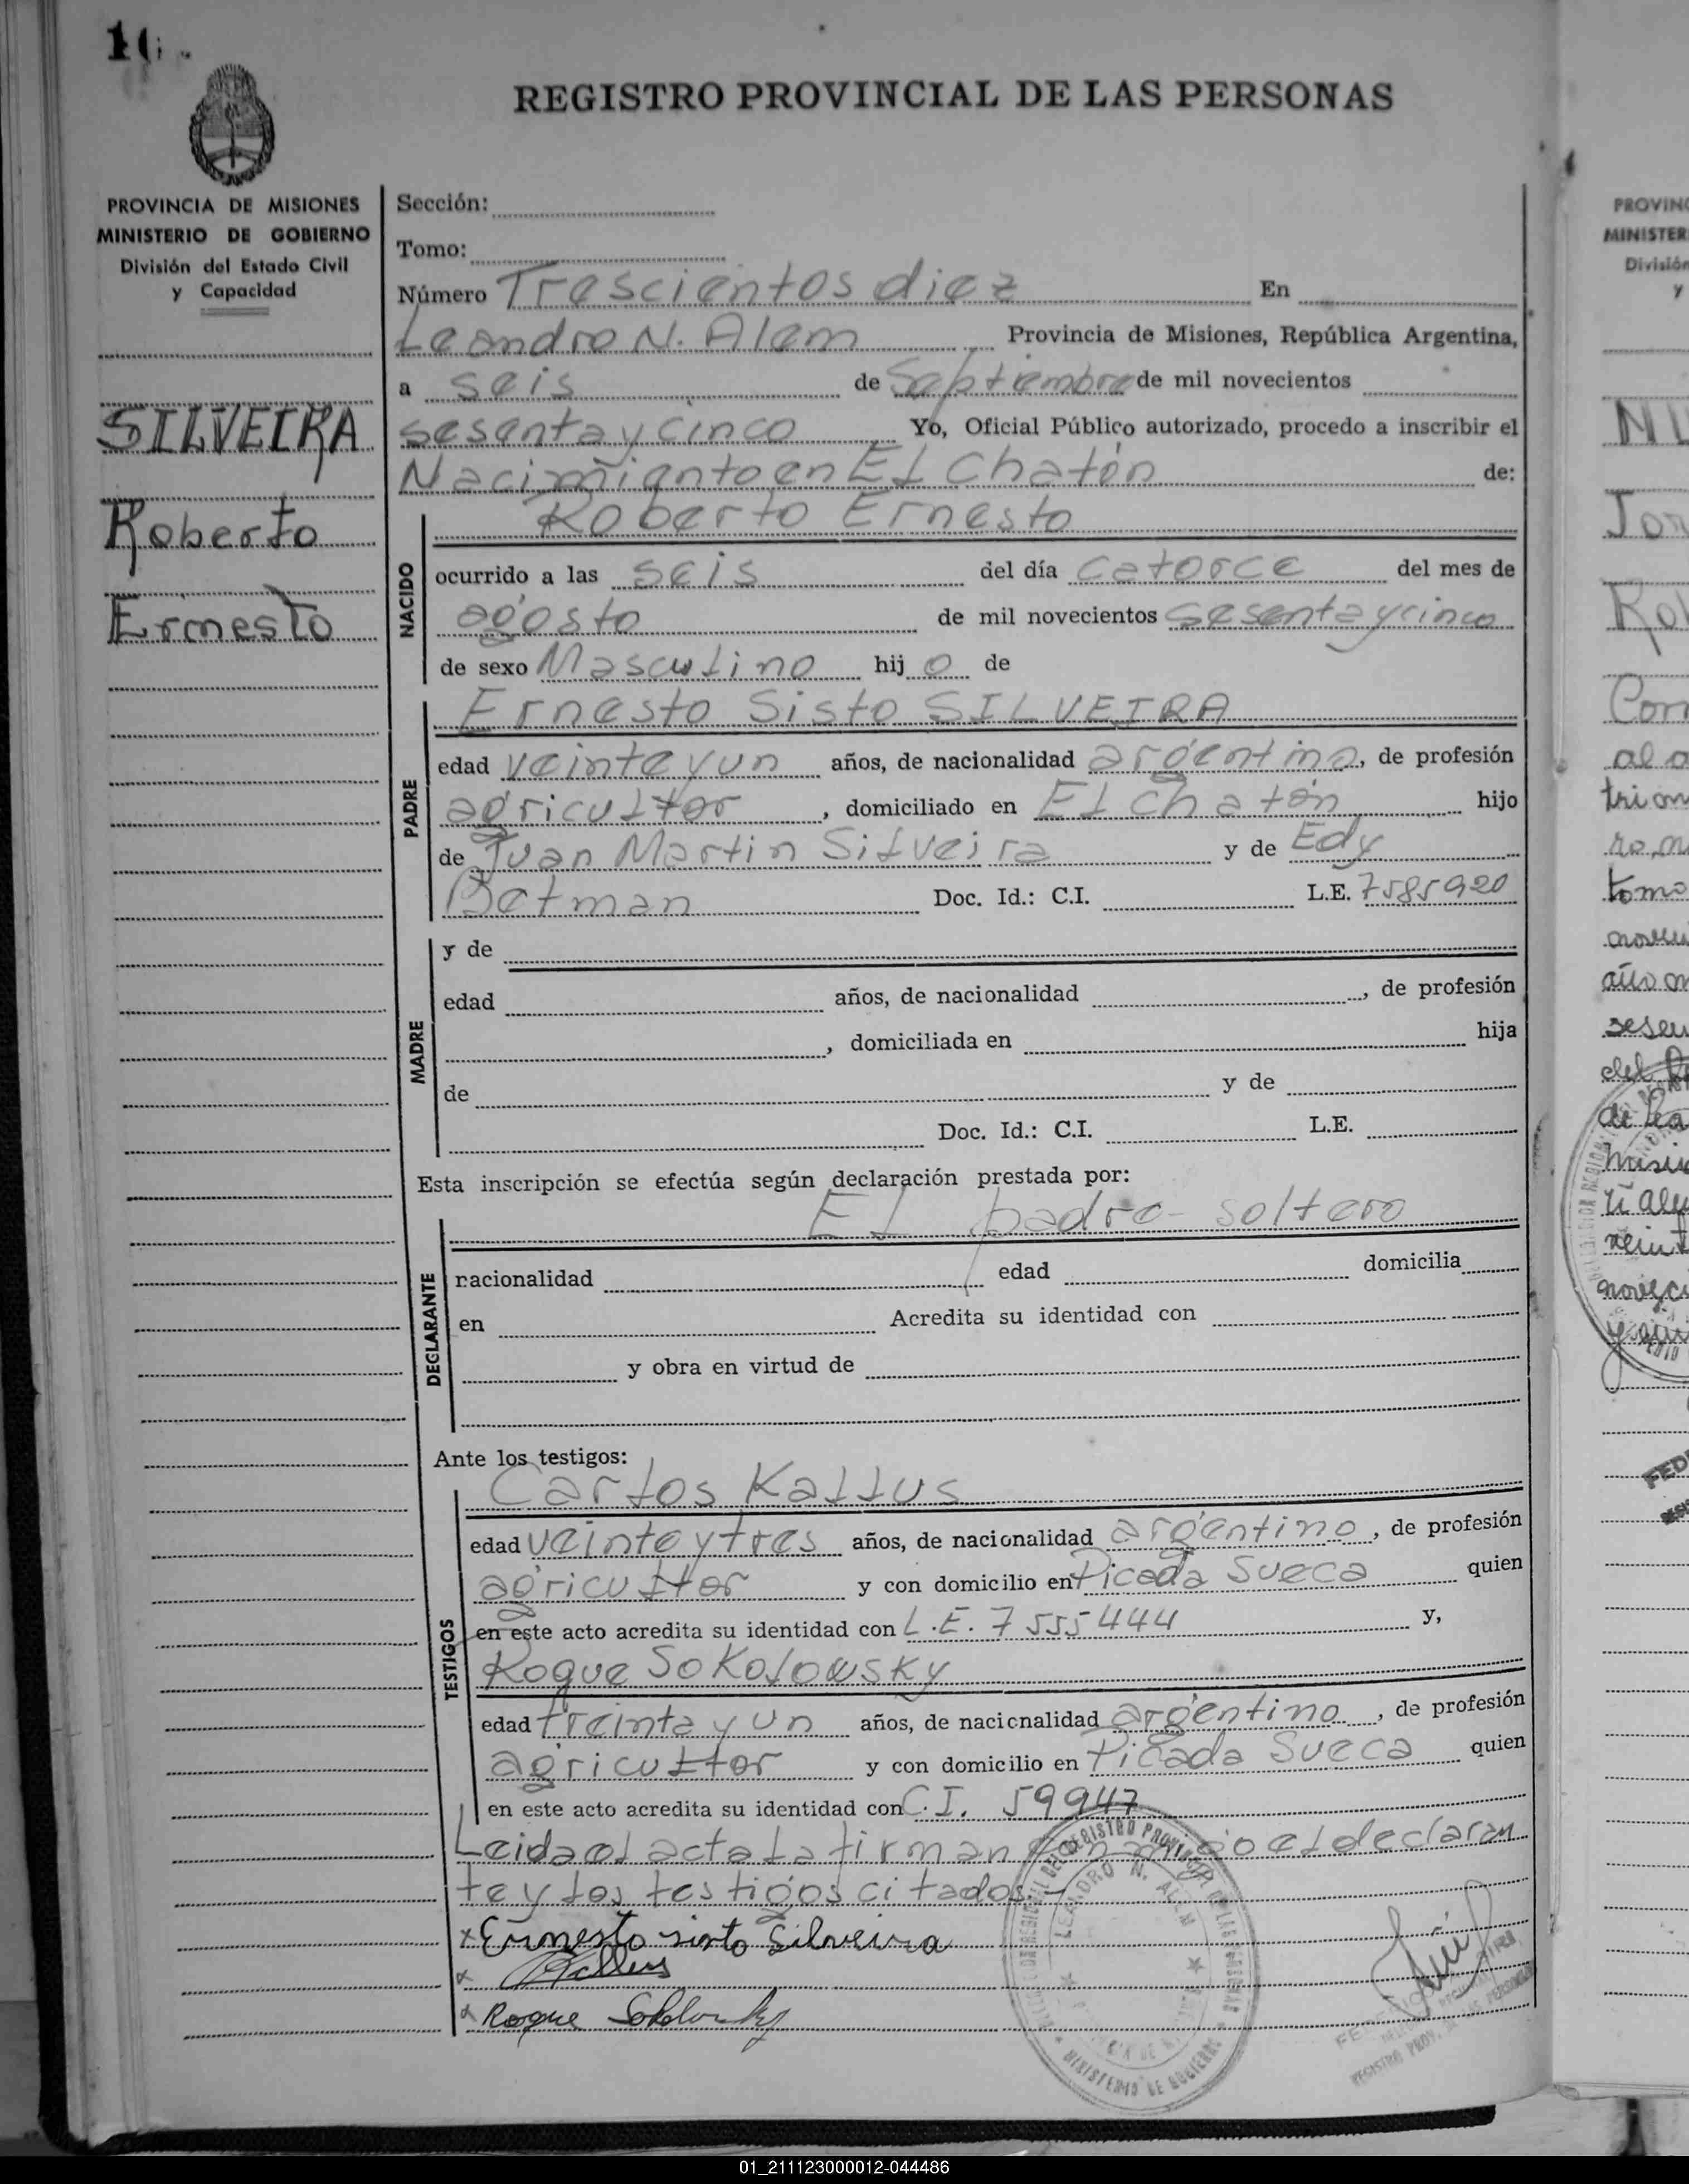 REGISTRO PROVINCIAL DE LAS PERSONAS
PROVINCIA DE MISIONES
MINISTERIO DE GOBIERNO
División del Estado Civil
y Capacidad
SILVEIRA
Roberto
Ernesto
Sección:
Tomo:
Número Trescientos diez En
Leandro N. Alem Provincia de Misiones, República Argentina,
a seis de Septiembre de mil novecientos
sesenta y cinco Yo, Oficial Público autorizado, procedo a inscribir el
Nacimiento en El Chatón de:
Roberto Ernesto
NACIDO
ocurrido a las seis del día catorce del mes de
agosto de mil novecientos sesenta y cinco
de sexo Masculino hijo de
Ernesto Sisto SILVEIRA
PADRE
edad veinte y un años, de nacionalidad argentino, de profesión
agricultor, domiciliado en El Chatón hijo
de Juan Martin Silveira y de Edy
Betman Doc. Id.: C.I. L.E. 7585920
MADRE
y de
edad años, de nacionalidad , de profesión
, domiciliada en hija
de y de
Doc. Id.: C.I. L.E.
Esta inscripción se efectúa según declaración prestada por:
El padre - soltero
DECLARANTE
nacionalidad edad domicilia
en Acredita su identidad con
y obra en virtud de
Ante los testigos:
Carlos Kallus
TESTIGOS
edad veinte y tres años, de nacionalidad argentino, de profesión
agricultor y con domicilio en Picada Sueca quien
en este acto acredita su identidad con L.E. 7555444 y,
Roque Sokolowsky
edad treinta y un años, de nacionalidad argentino, de profesión
agricultor y con domicilio en Picada Sueca quien
en este acto acredita su identidad con C.I. 59947
Leida el acta la firman conmigo el declaran
te y los testigos citados.-
x Ernesto sisto Silveira
x Kallus
x Roque Sokolowsky
LEANDRO N. ALEM
MINISTERIO DE GOBIERNO
01_211123000012-044486